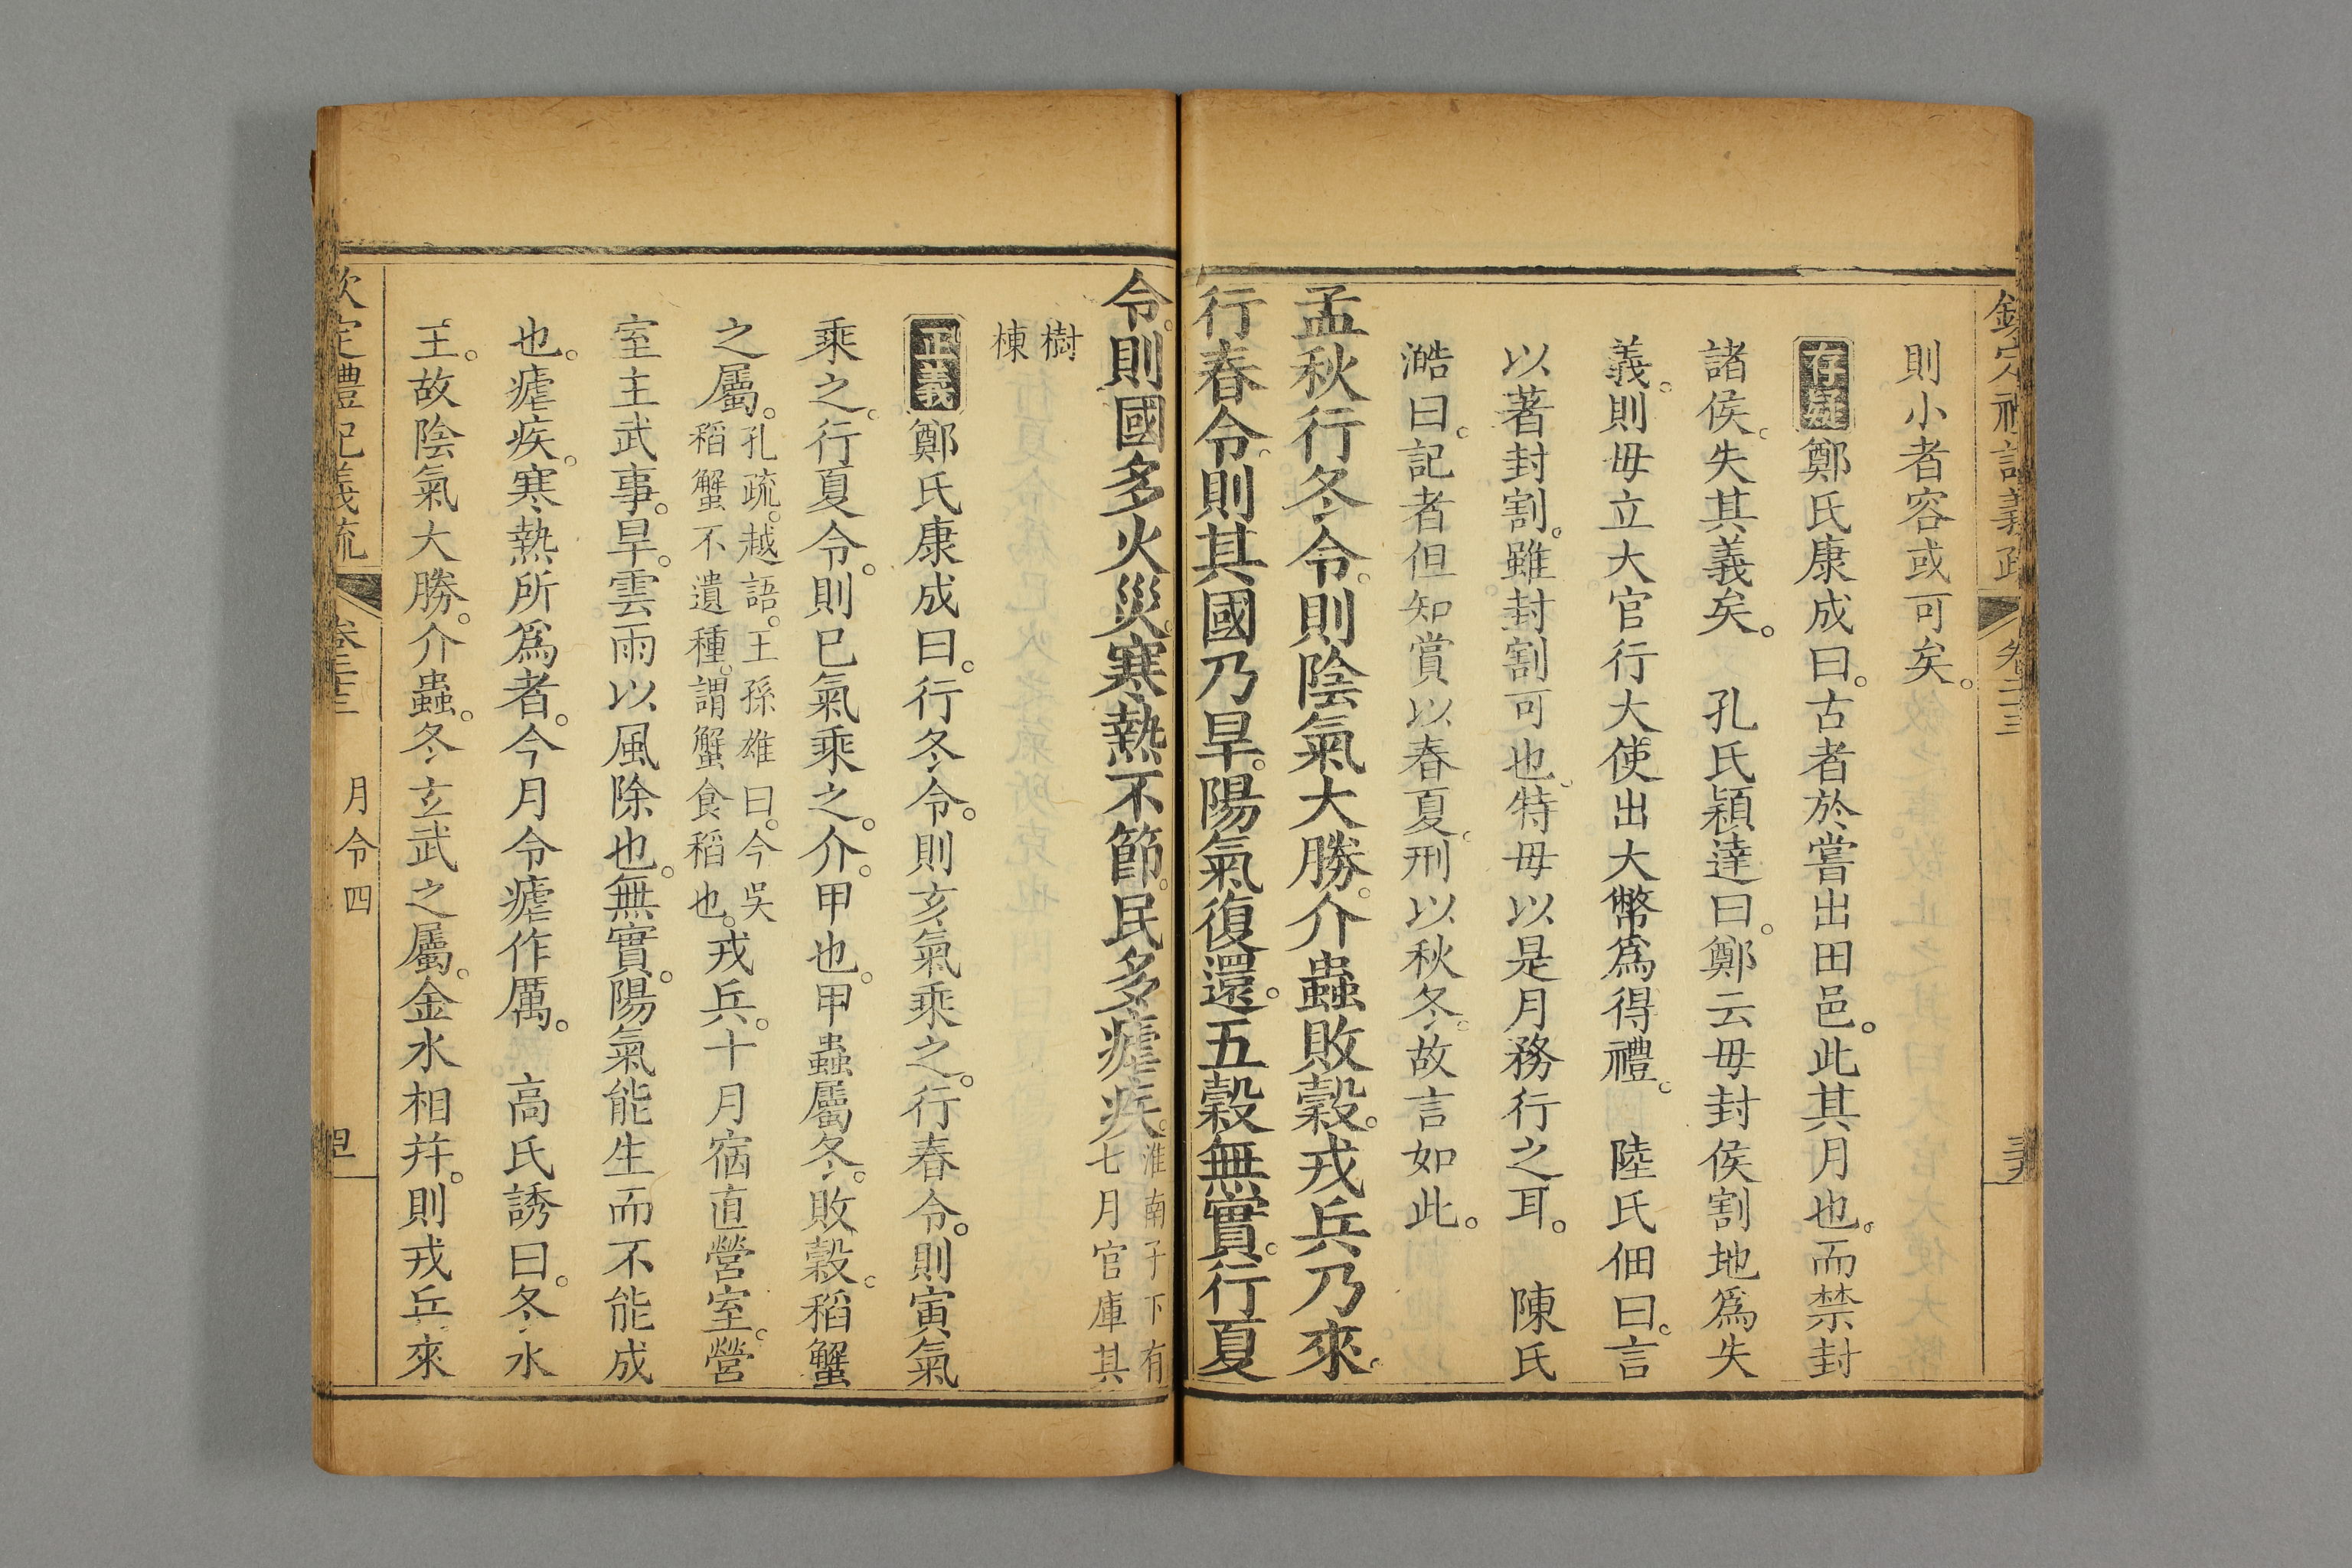 欽定禮記義疏 卷二十三
則小者容或可矣。
存疑 鄭氏康成曰。古者於嘗出田邑。此其月也。而禁封
諸侯。失其義矣。 孔氏穎達曰。鄭云毋封侯割地爲失
義。則毋立大官行大使出大幣爲得禮。 陸氏佃曰。言
以著封割。雖封割可也。特毋以是月務行之耳。 陳氏
澔曰。記者但知賞以春夏。刑以秋冬。故言如此。
孟秋行冬令。則陰氣大勝。介蟲敗穀。戎兵乃來。
行春令。則其國乃旱。陽氣復還。五穀無實。行夏
令。則國多火災。寒熱不節。民多瘧疾。淮南子下有七月官庫其
樹棟
正義 鄭氏康成曰。行冬令。則亥氣乘之。行春令。則寅氣
乘之。行夏令。則巳氣乘之。介。甲也。甲蟲屬冬。敗穀。稻蟹
之屬。孔疏。越語。王孫雄曰。今吳稻蟹不遺種。謂蟹食稻也。戎兵。十月宿直營室。營
室主武事。旱。雲雨以風除也。無實。陽氣能生而不能成
也。瘧疾。寒熱所爲者。今月令瘧作厲。 高氏誘曰。冬水
王。故陰氣大勝。介蟲。冬玄武之屬。金水相幷。則戎兵來
欽定禮記義疏 卷二十三 月令四